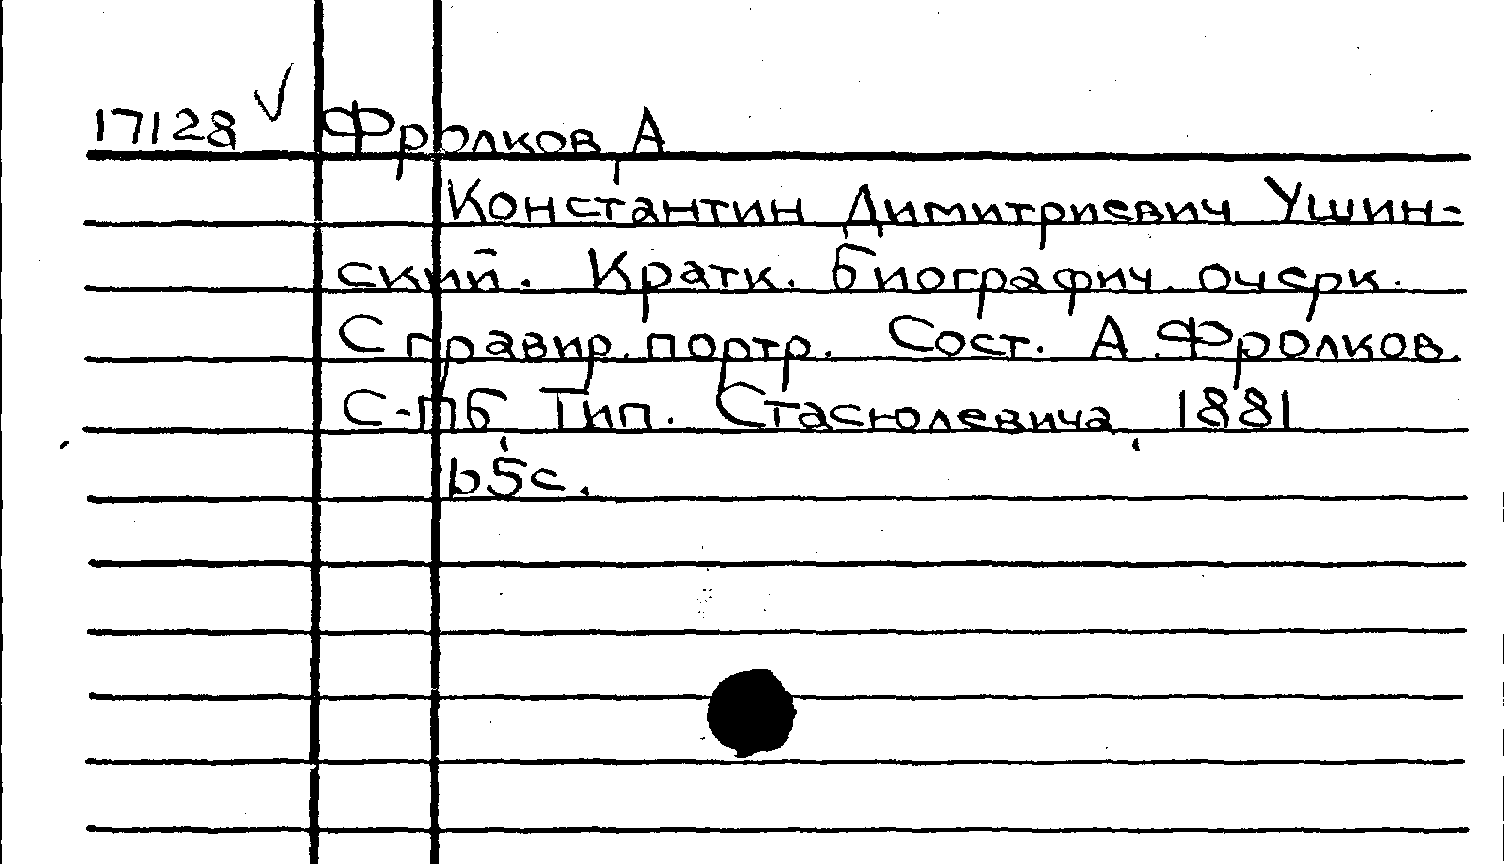 17128 √ Фролков, А
Константин Димитриевич Ушин-
ский. Кратк. биографич. очерк.
С гравир. портр. Сост. А. Фролков.
С-Пб, Тип. Стасюлевича, 1881
65с.